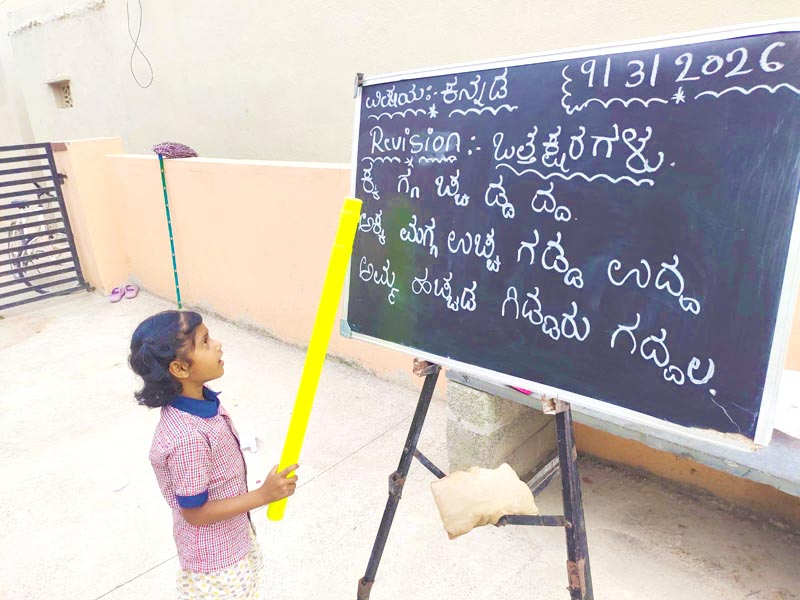 ವಿಷಯ:- ಕನ್ನಡ 9/3/2026
Revision:- ಒತ್ತಕ್ಷರಗಳು.
ಕ್ಕ ಗ್ಗ ಚ್ಚ ಡ್ಡ ದ್ದ
ಅಕ್ಕ ಮಗ್ಗ ಉಚ್ಚ ಗಡ್ಡ ಉದ್ದ
ಅಮ್ಮ ಹಚ್ಚಡ ಗಿಡ್ಡರು ಗದ್ದಲ.